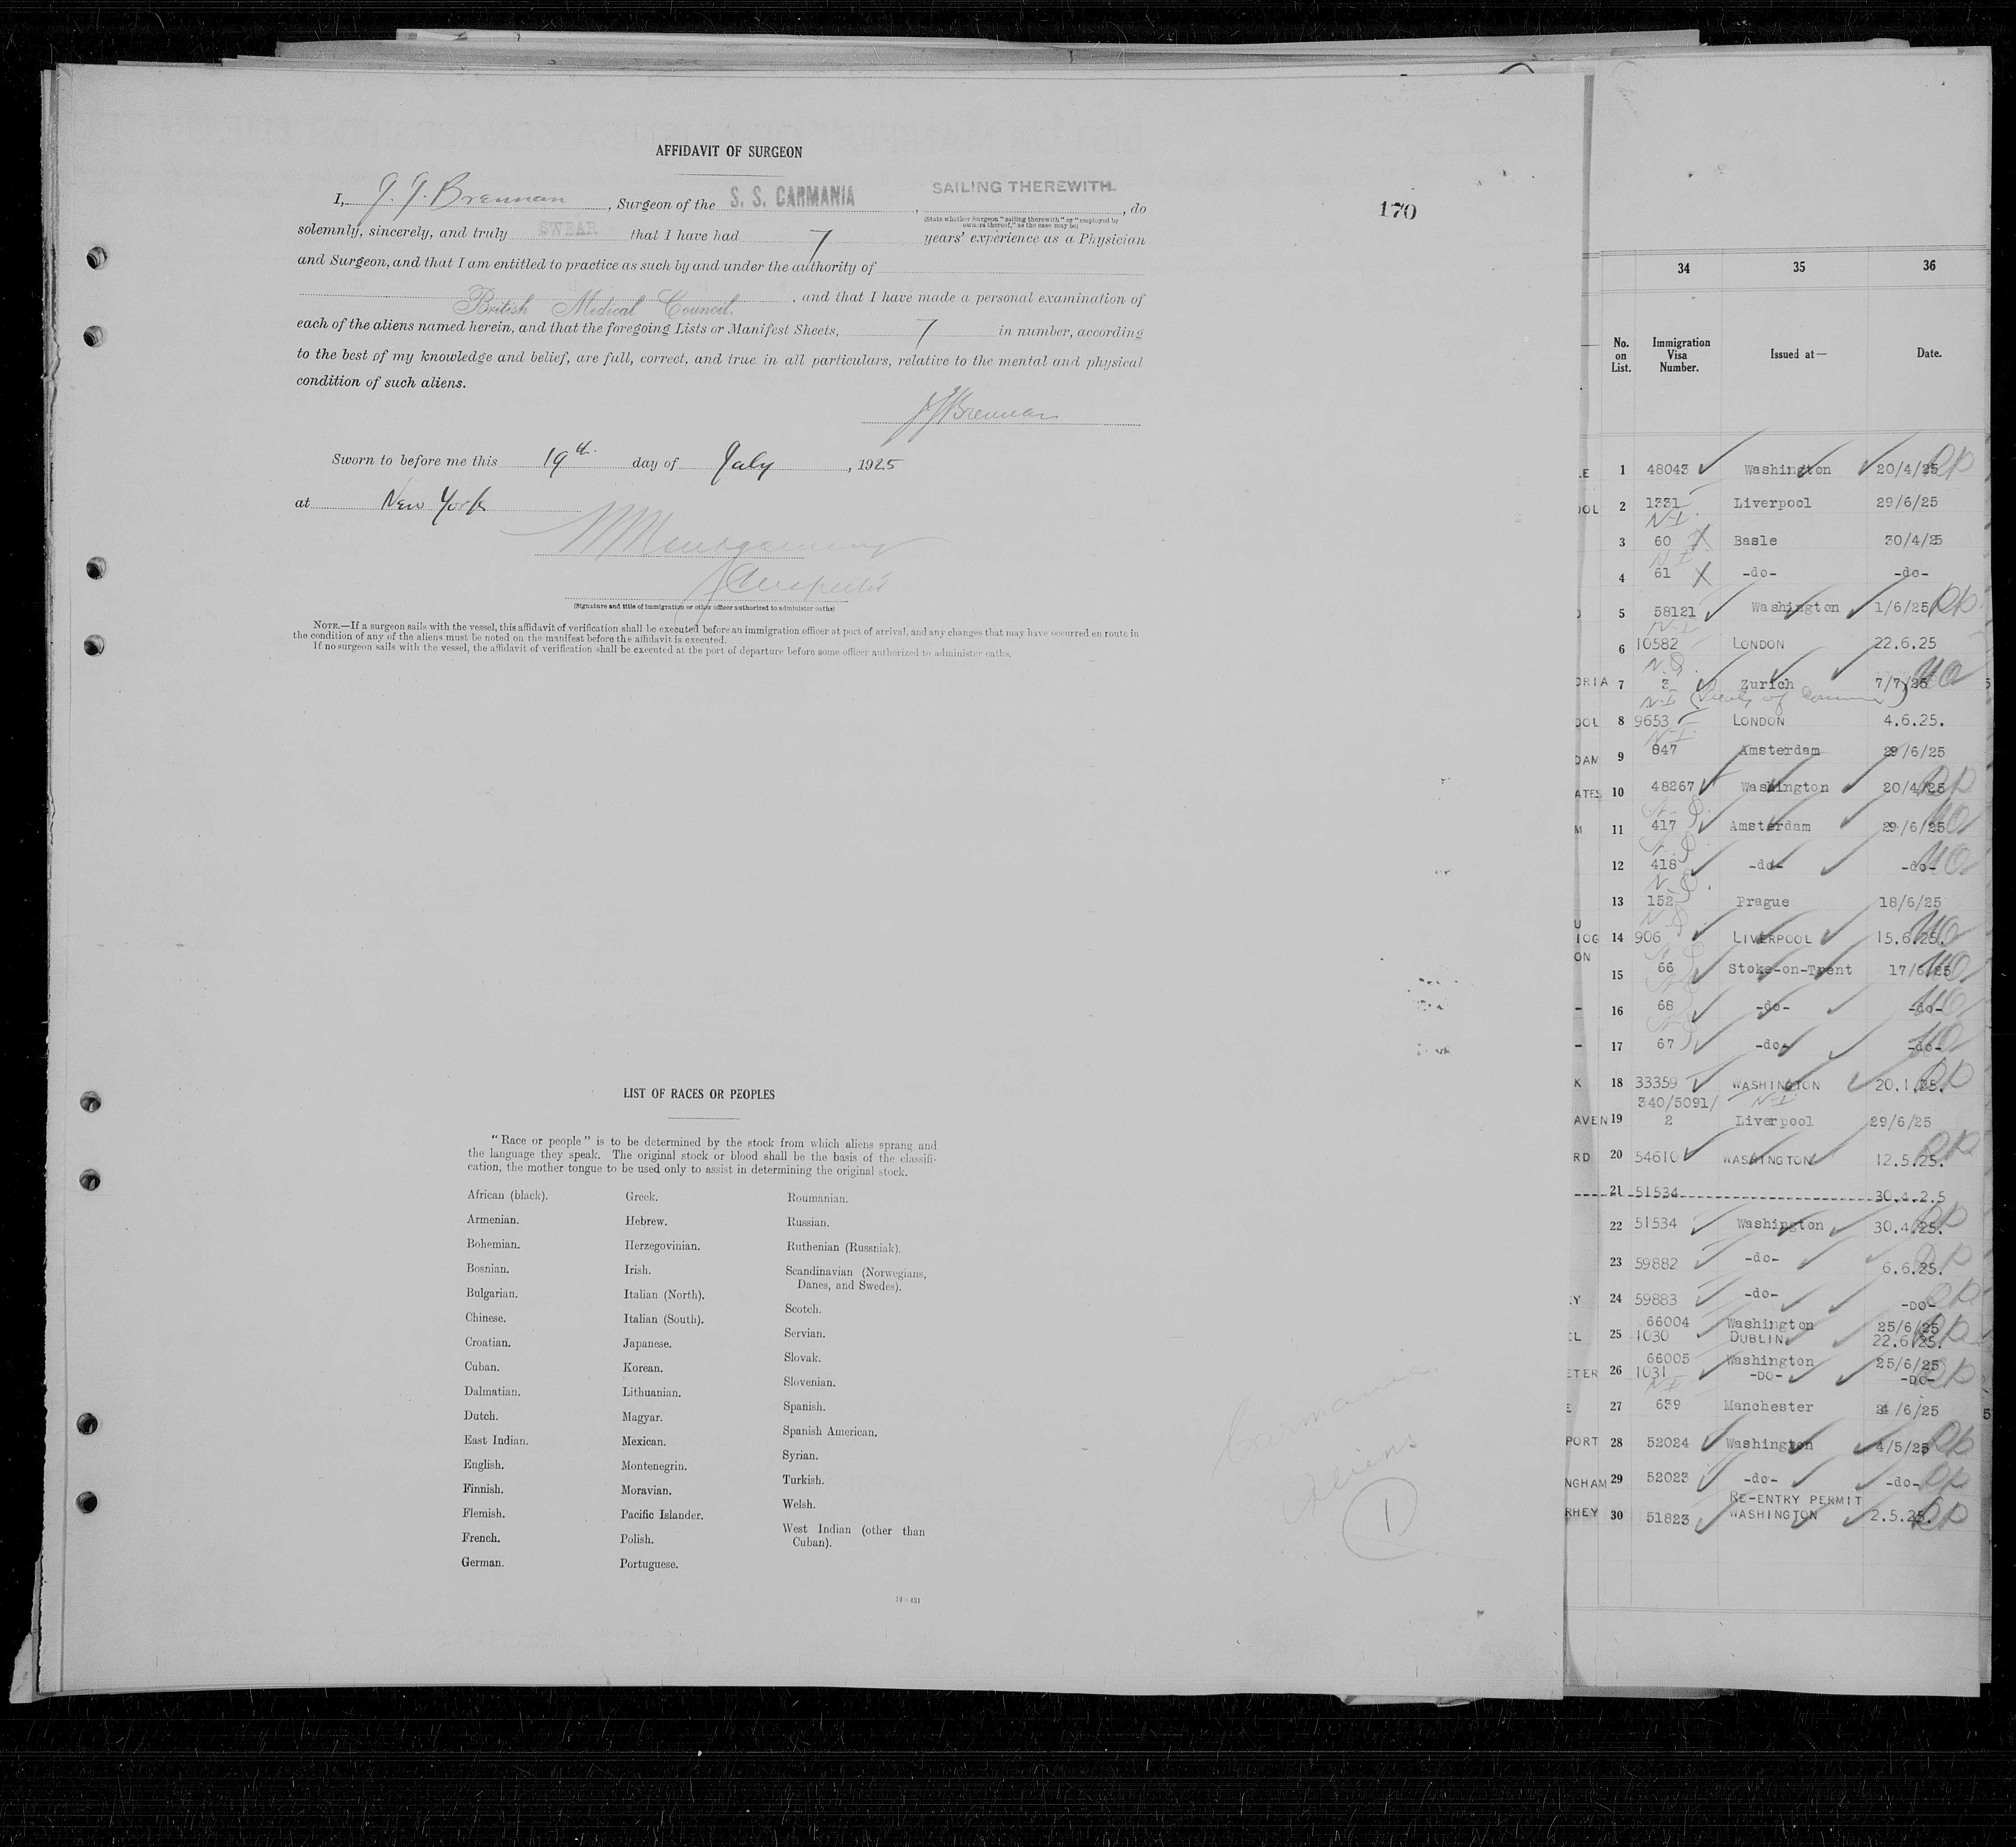 AFFIDAVIT OF SURGEON
I, J. J. Brennan, Surgeon of the S. S. CARMANIA, SAILING THEREWITH., do
(State whether Surgeon "sailing therewith" or "employed by
owners thereof," as the case may be)
solemnly, sincerely, and truly SWEAR that I have had 7 years' experience as a Physician
and Surgeon, and that I am entitled to practice as such by and under the authority of
British Medical Council., and that I have made a personal examination of
each of the aliens named herein, and that the foregoing Lists or Manifest Sheets, 7 in number, according
to the best of my knowledge and belief, are full, correct, and true in all particulars, relative to the mental and physical
condition of such aliens.
J J Brennan
Sworn to before me this 19th day of July, 1925
at New York
Montgomery
Inspector
(Signature and title of immigration or other officer authorized to administer oaths)
NOTE.—If a surgeon sails with the vessel, this affidavit of verification shall be executed before an immigration officer at port of arrival, and any changes that may have occurred en route in
the condition of any of the aliens must be noted on the manifest before the affidavit is executed.
If no surgeon sails with the vessel, the affidavit of verification shall be executed at the port of departure before some officer authorized to administer oaths.
170
LIST OF RACES OR PEOPLES
"Race or people" is to be determined by the stock from which aliens sprang and
the language they speak. The original stock or blood shall be the basis of the classifi-
cation, the mother tongue to be used only to assist in determining the original stock.
African (black).
Armenian.
Bohemian.
Bosnian.
Bulgarian.
Chinese.
Croatian.
Cuban.
Dalmatian.
Dutch.
East Indian.
English.
Finnish.
Flemish.
French.
German.
Greek.
Hebrew.
Herzegovinian.
Irish.
Italian (North).
Italian (South).
Japanese.
Korean.
Lithuanian.
Magyar.
Mexican.
Montenegrin.
Moravian.
Pacific Islander.
Polish.
Portuguese.
Roumanian.
Russian.
Ruthenian (Russniak).
Scandinavian (Norwegians,
Danes, and Swedes).
Scotch.
Servian.
Slovak.
Slovenian.
Spanish.
Spanish American.
Syrian.
Turkish.
Welsh.
West Indian (other than
Cuban).
Carmania
Aliens
1
34 35 36
No. on List. Immigration Visa Number. Issued at— Date.
LE 1 48043 Washington 20/4/25 RP
OOL 2 1331 Liverpool 29/6/25
N-I.
3 60 Basle 30/4/25
N-I
4 61 -do- -do-
5 58121 Washington 1/6/25 RP
N-I
6 10582 LONDON 22.6.25
N.Q.
ORIA 7 3 Zurich 7/7/25
N-I
OOL 8 9653 LONDON 4.6.25.
N-I.
DAM 9 847 Amsterdam 29/6/25
ATES 10 48267 Washington 20/4/25 RP
N-Q.
M 11 417 Amsterdam 29/6/25
N-Q.
12 418 -do- -do-
N-Q.
13 152 Prague 18/6/25
N-Q
IOG 14 906 LIVERPOOL 15.6.25.
ON
15 66 Stoke-on-Trent 17/6/25
- 16 68 -do- -do-
- 17 67 -do- -do-
K 18 33359 WASHINGTON 20.1.25. RP
340/5091/ N-I
AVEN 19 2 Liverpool 29/6/25
RD 20 54610 WASHINGTON 12.5.25. RP
21 51534 30.4.2.5
22 51534 Washington 30.4.25. RP
23 59882 -do- 6.6.25. RP
EY 24 59883 -do- -DO- RP
66004 Washington 25/6/25
EL 25 1030 DUBLIN 22.6.25. RP
66005 Washington 25/6/25
ETER 26 1031 -DO- -DO- RP
N-I
E 27 639 Manchester 24/6/25
PORT 28 52024 Washington 4/5/25 RP
NGHAM 29 52023 -do- -do- RP
RE-ENTRY PERMIT
RHEY 30 51823 WASHINGTON 2.5.25. RP